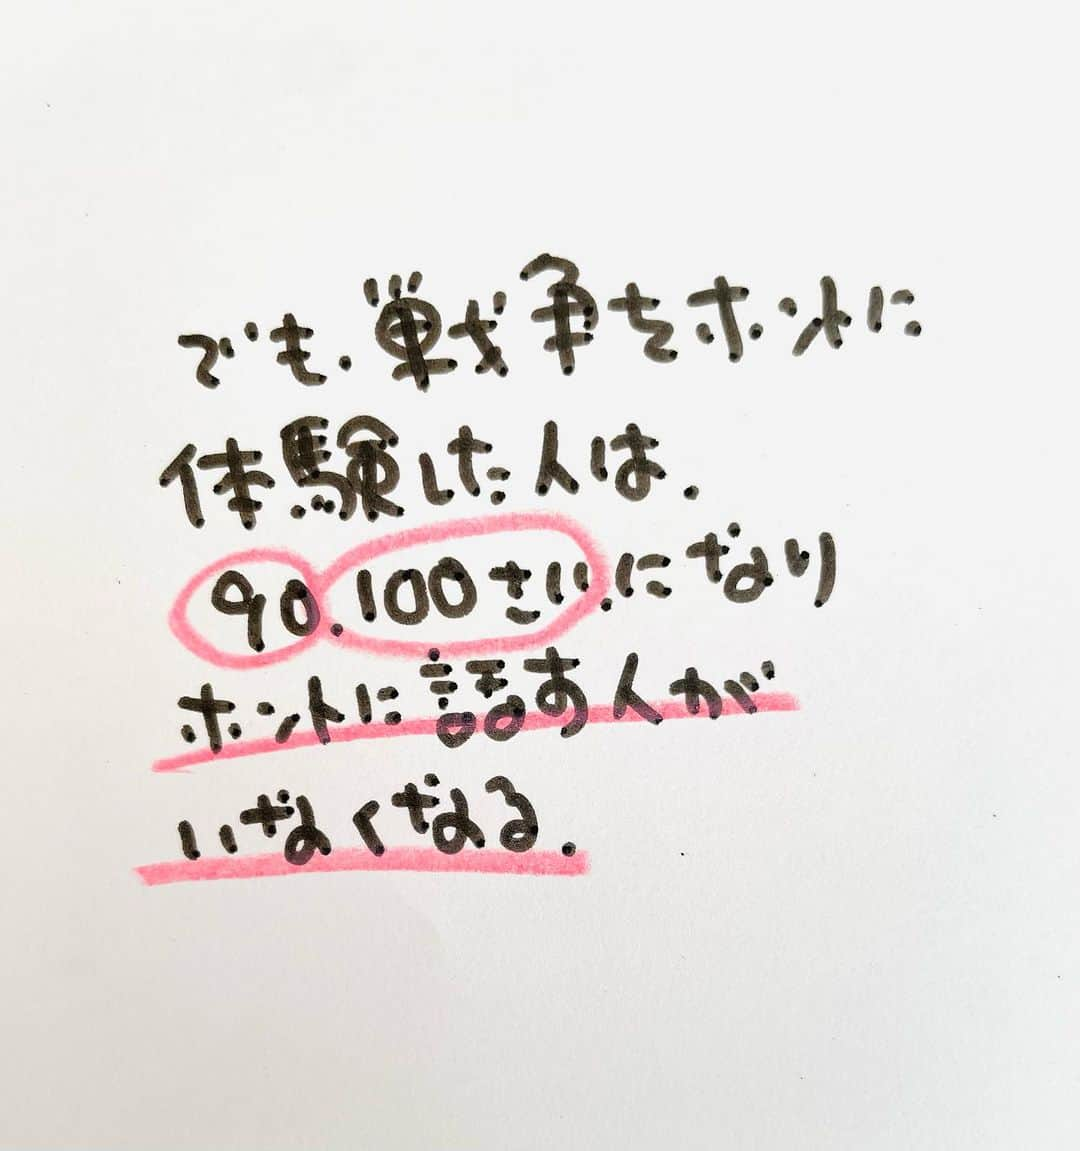 でも.戦争をホントに
体験した人は.
90.100さい.になり
ホントに話す人が
いなくなる.